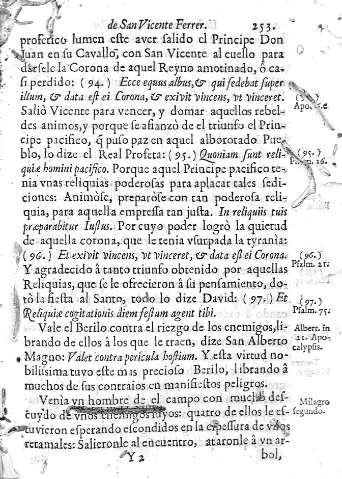 de San Vicente Ferrer. 253.
profetico lumen este aver salido el Principe Don
Juan en su Cavallo, con San Vicente al cuello para
darsele la Corona de aquel Reyno amotinado, ó ca-
si perdido: (94.) Ecce equus albus, & qui sedebat super
illum, & data est ei Corona, & exivit vincens, vt vinceret.
Saliò Vicente para vencer, y domar aquellos rebel-
des animos, y porque se afianzò de el triunfo el Prin-
cipe pacifico, q̃ puso paz en aquel alborotado Pue-
blo, lo dize el Real Profeta: (95.) Quoniam sunt reli-
quiæ homini pacifico. Porque aquel Principe pacifico te-
nia vnas reliquias poderosas para aplacar tales sedi-
ciones: Animòse, preparòse con tan poderosa reli-
quia, para aquella empressa tan justa. In reliquiis tuis
præparabitur Iustus. Por cuyo poder logrò la quietud
de aquella corona, que le tenia vsurpada la tyranìa:
(96.) Et exivit vincens, vt vinceret, & data est ei Corona.
Y agradecido â tanto triunfo obtenido por aquellas
Reliquias, que se le ofrecieron â su pensamiento, do-
tò la fiesta al Santo, todo lo dize David: (97.) Et
Reliquiæ cogitationis diem festum agent tibi.
Vale el Berilo contra el riezgo de los enemigos, li-
brando de ellos â los que le traen, dize San Alberto
Magno: Valet contra pericula hostium. Y esta virtud no-
bilissima tuvo este mas precioso Berilo, librando â
muchos de sus contraios en manifiestos peligros.
Venia vn hombre de el campo con mucho des-
cuydo de vnos enemigos suyos: quatro de ellos le es-
tuvieron esperando escondidos en la espessura de vnos
retamales: Salieronle al encuentro, ataronle â vn ar-
Y 2 bol,
(95.)
Psalm. 36.
(96.)
Psalm. 21.
(97.)
Psalm. 75.
Albert. in
21. Apo-
calypsis.
Milagro
segundo.